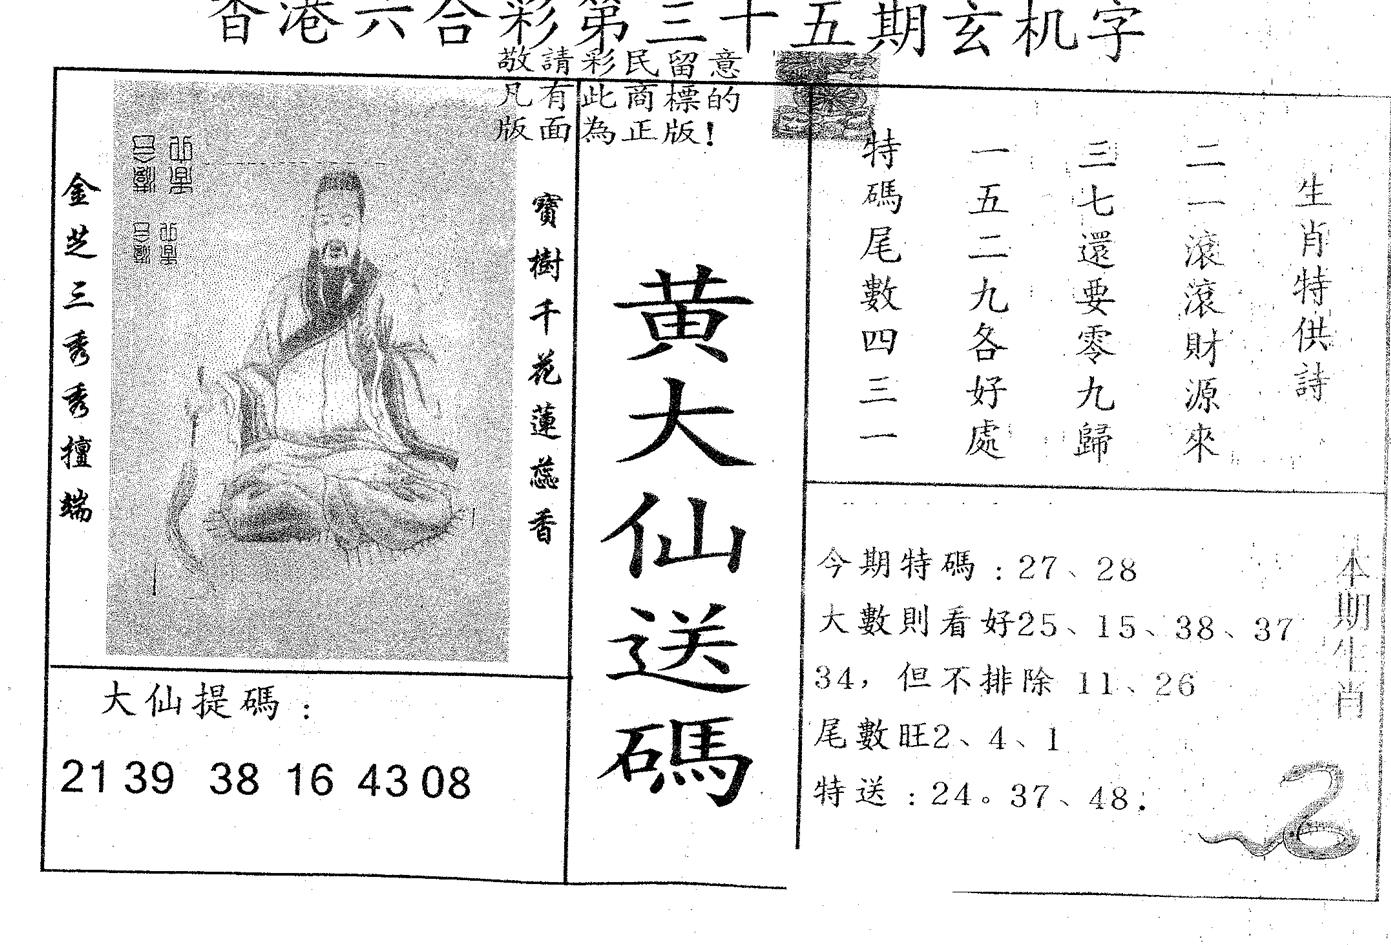 香港六合彩第三十五期玄机字
敬請彩民留意
凡有此商標的
版面為正版！
金芝三秀秀擅端
寶樹千花蓮蕊香
黃大仙送碼
生肖特供詩
二一滾滾財源來
三七還要零九歸
一五二九各好處
特碼尾數四三一
大仙提碼：
21 39 38 16 43 08
今期特碼：27、28
大數則看好25、15、38、37
34，但不排除 11、26
尾數旺2、4、1
特送：24。37、48.
本期生肖